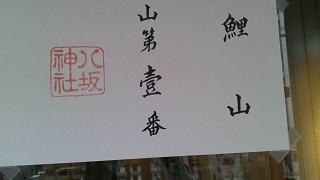 鯉山
山第壹番
八坂
神社